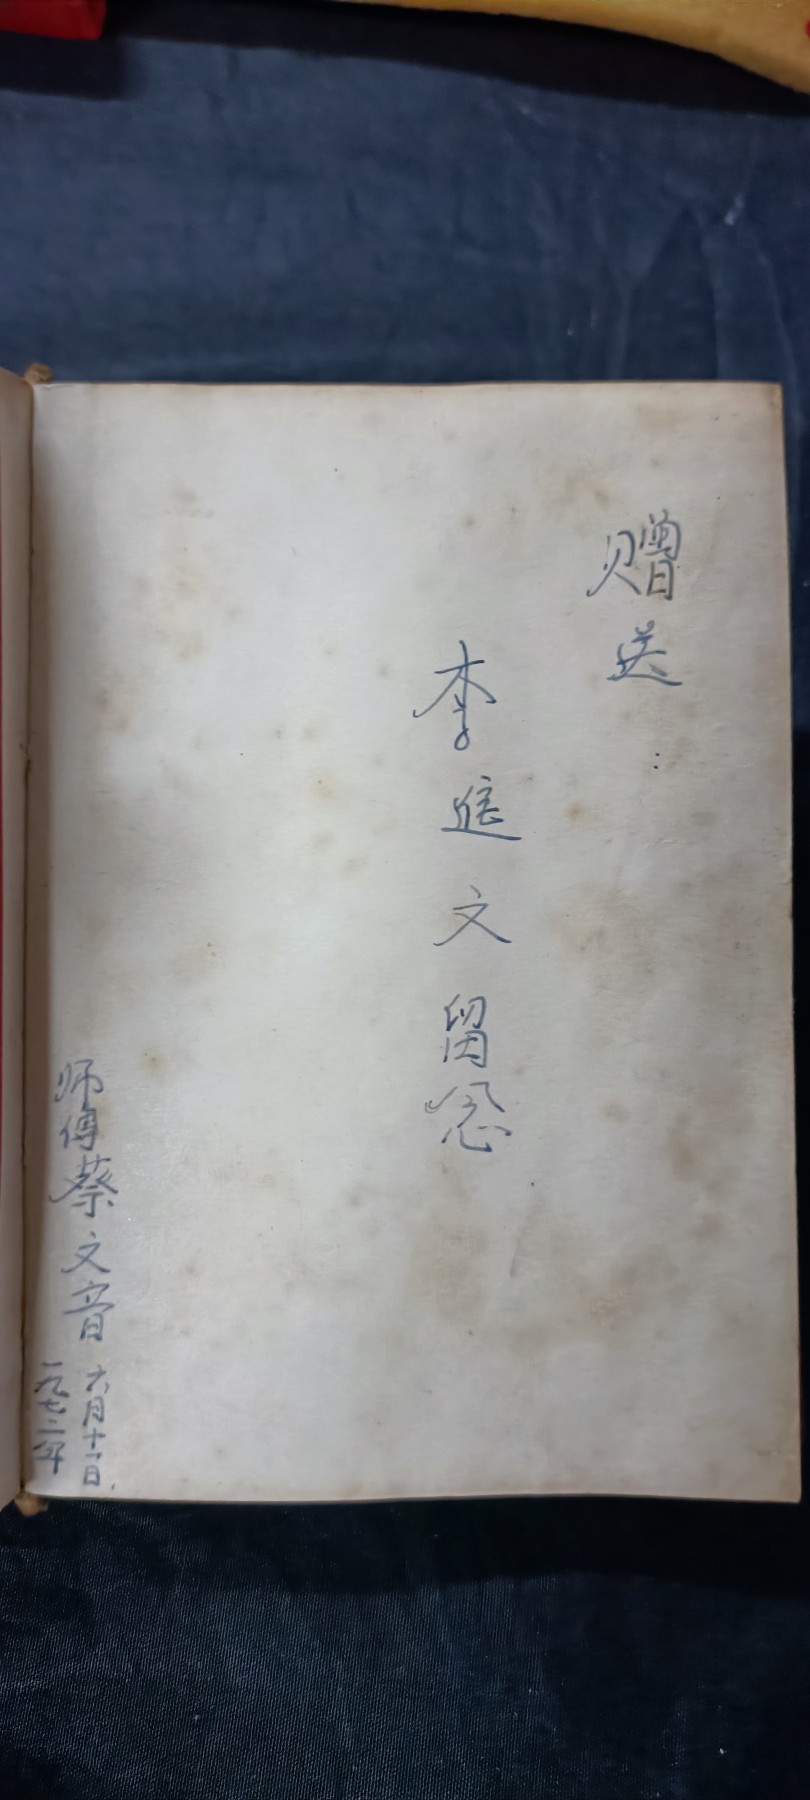 赠送：
李 文留念
师傅蔡文音
六月十一日
一九七二年